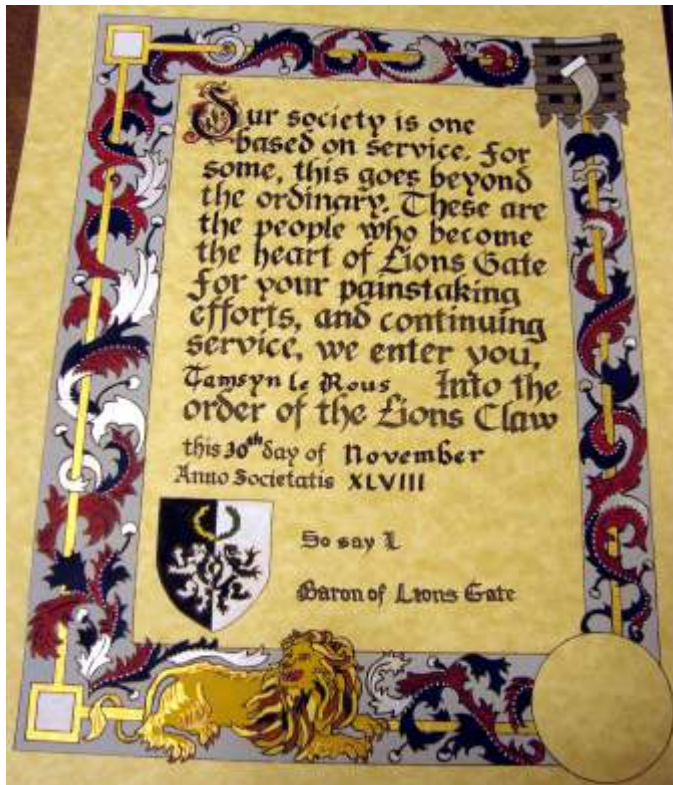 Our society is one
based on service. For
some, this goes beyond
the ordinary. These are
the people who become
the heart of Lions Gate
For your painstaking
efforts, and continuing
service, we enter you,
Tamsyn le Rous Into the
order of the Lions Claw
this 30th day of November
Anno Societatis XLVIII
So say I
Baron of Lions Gate